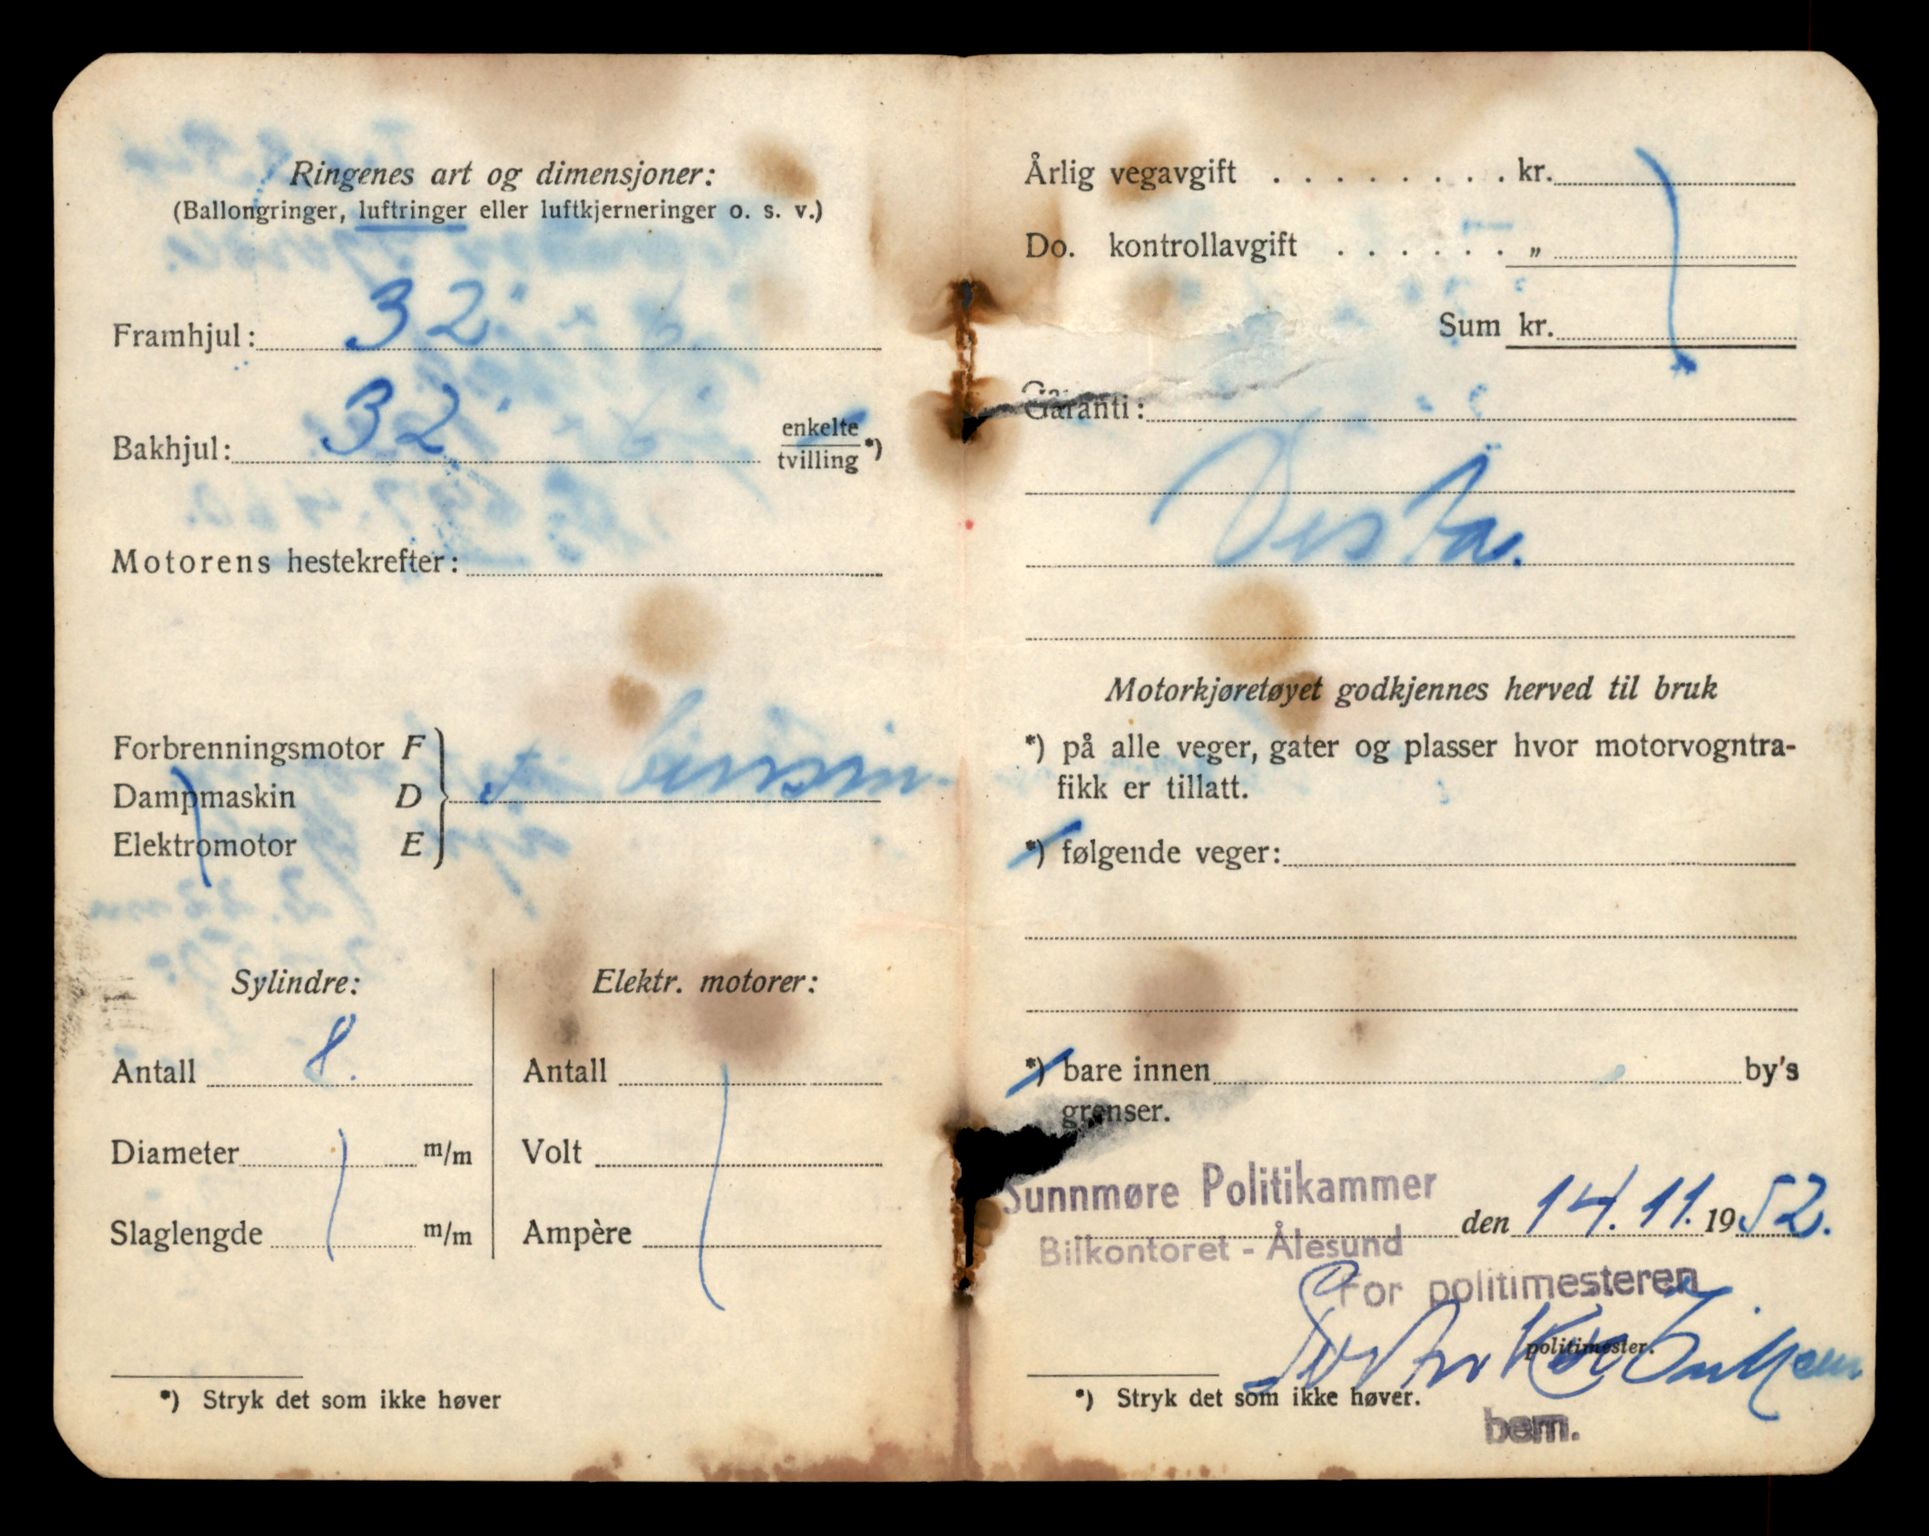 Ringenes art og dimensjoner:
(Ballongringer, luftringer eller luftkjerneringer o. s. v.)
Framhjul: 32
Bakhjul: 32 enkelte
tvilling *)
Motorens hestekrefter:
Forbrenningsmotor F
Dampmaskin D
Elektromotor E
F bensin
Sylindre:
Antall 8.
Diameter m/m
Slaglengde m/m
Elektr. motorer:
Antall
Volt
Ampère
*) Stryk det som ikke høver
Årlig vegavgift . . . . . . . . kr.
Do. kontrollavgift . . . . . . „
Sum kr.
Garanti:
Vesta.
Motorkjøretøyet godkjennes herved til bruk
*) på alle veger, gater og plasser hvor motorvogntra-
fikk er tillatt.
*) følgende veger:
*) bare innen by's
grenser.
Sunnmøre Politikammer
Bilkontoret - Ålesund
den 14.11. 1952.
For politimesteren
politimester.
*) Stryk det som ikke høver.
bem.